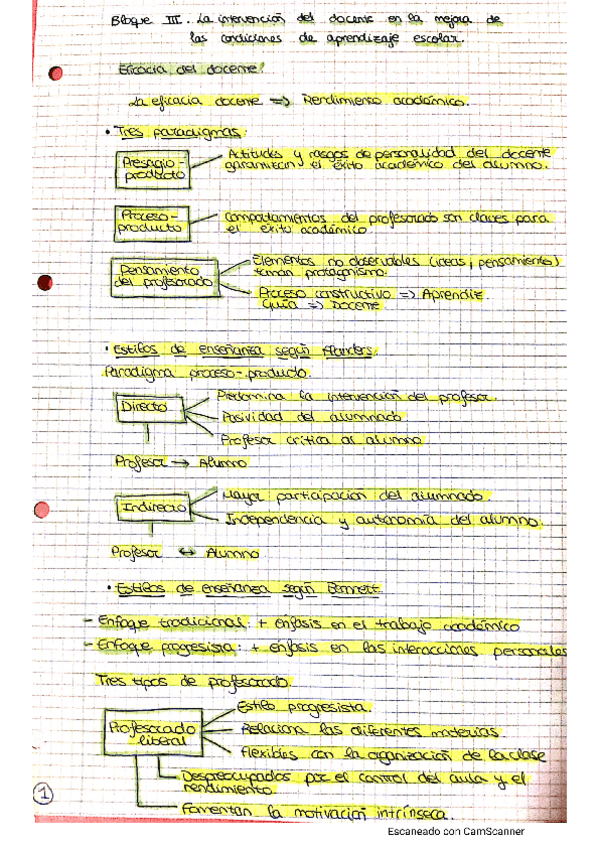 Bloque III. La intervención del docente en la mejora de
las condiciones de aprendizaje escolar.
Eficacia del docente:
La eficacia docente => Rendimiento académico.
• Tres paradigmas:
Presagio-
producto
Actitudes y rasgos de personalidad del docente
garantizan el éxito académico del alumno.
Proceso-
producto
Comportamientos del profesorado son claves para
el éxito académico.
Pensamiento
del profesorado
Elementos no observables (ideas, pensamiento)
toman protagonismo.
Proceso constructivo => Aprendiz.
Guía => Docente
• Estilos de enseñanza según Flanders.
Paradigma proceso-producto.
Directo
Predomina la intervención del profesor.
Pasividad del alumnado
Profesor critica al alumno
Profesor → Alumno
Indirecto
Mayor participación del alumnado.
Independencia y autonomía del alumno.
Profesor ↔ Alumno
• Estilos de enseñanza según Bennett
- Enfoque tradicional: + énfasis en el trabajo académico
- Enfoque progresista: + énfasis en las interacciones personales
Tres tipos de profesorado.
Profesorado
liberal
Estilo progresista.
Relaciona las diferentes materias.
Flexibles con la organización de la clase
Despreocupados por el control del aula y el
rendimiento
Fomentan la motivación intrínseca.
1
Escaneado con CamScanner